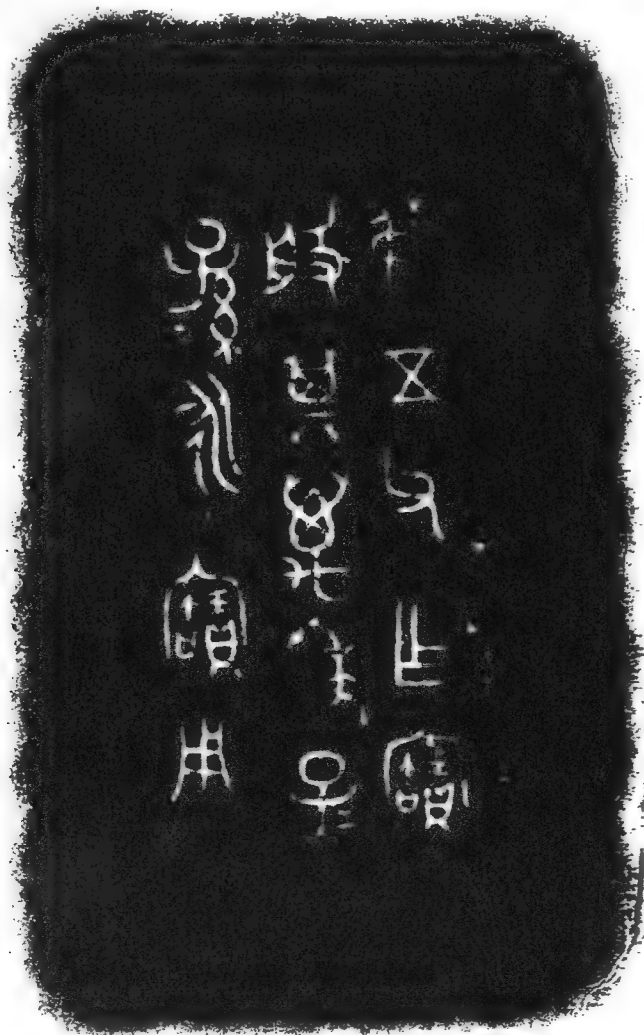 五父乍寶
𣪘其萬年子
孫永寶用